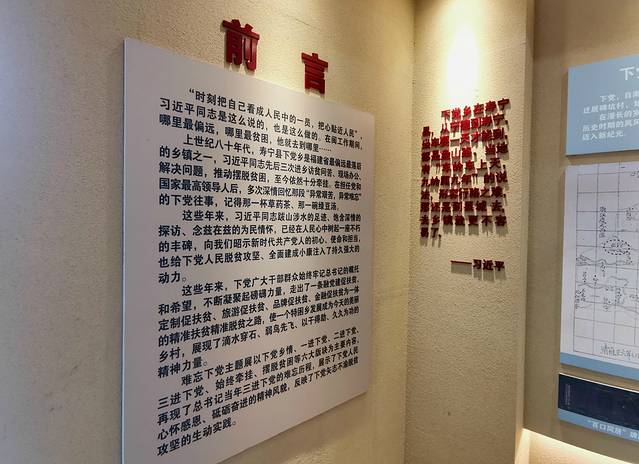 前言
“时刻把自己看成人民中的一员，把心贴近人民”，
习近平同志是这么说的，也是这么做的。在闽工作期间，
哪里最偏远，哪里最贫困，他就去到哪里……
上世纪八十年代，寿宁县下党乡是福建省最偏远最落后
的乡镇之一，习近平同志先后三次进乡访贫问苦、现场办公、
解决问题，推动摆脱贫困，至今依然十分牵挂。在担任党和
国家最高领导人后，多次深情回忆那段“异常艰苦，异常难忘”
的下党往事，记得那一杯草药茶、那一碗绿豆汤。
这些年来，习近平同志跋山涉水的足迹、饱含深情的
探访、念兹在兹的为民情怀，已经在人民心中树起一座不朽
的丰碑，向我们昭示新时代共产党人的初心、使命和担当，
也给下党人民脱贫攻坚、全面建成小康注入了持久强大的
动力。
这些年来，下党广大干部群众始终牢记总书记的嘱托
和希望，不断凝聚起磅礴力量，走出了一条融党建促扶贫、
定制促扶贫、旅游促扶贫、品牌促扶贫、金融促扶贫为一体
的精准扶贫精准脱贫之路，使一个特困乡发展成为今天的美丽
乡村，展现了滴水穿石、弱鸟先飞、以干得助、久久为功的
精神力量。
难忘下党主题展以下党乡情、一进下党、二进下党、
三进下党、始终牵挂、摆脱贫困等六大版块为主要内容，
再现了总书记当年三进下党的难忘历程，展示了下党人民
心怀感恩、砥砺奋进的精神风貌，反映了下党矢志不渝脱贫
攻坚的生动实践。
下党乡在寿宁
——习近平
下党
下党，自南
过晨
在漫长的
历史时期的风
迈入新纪元。